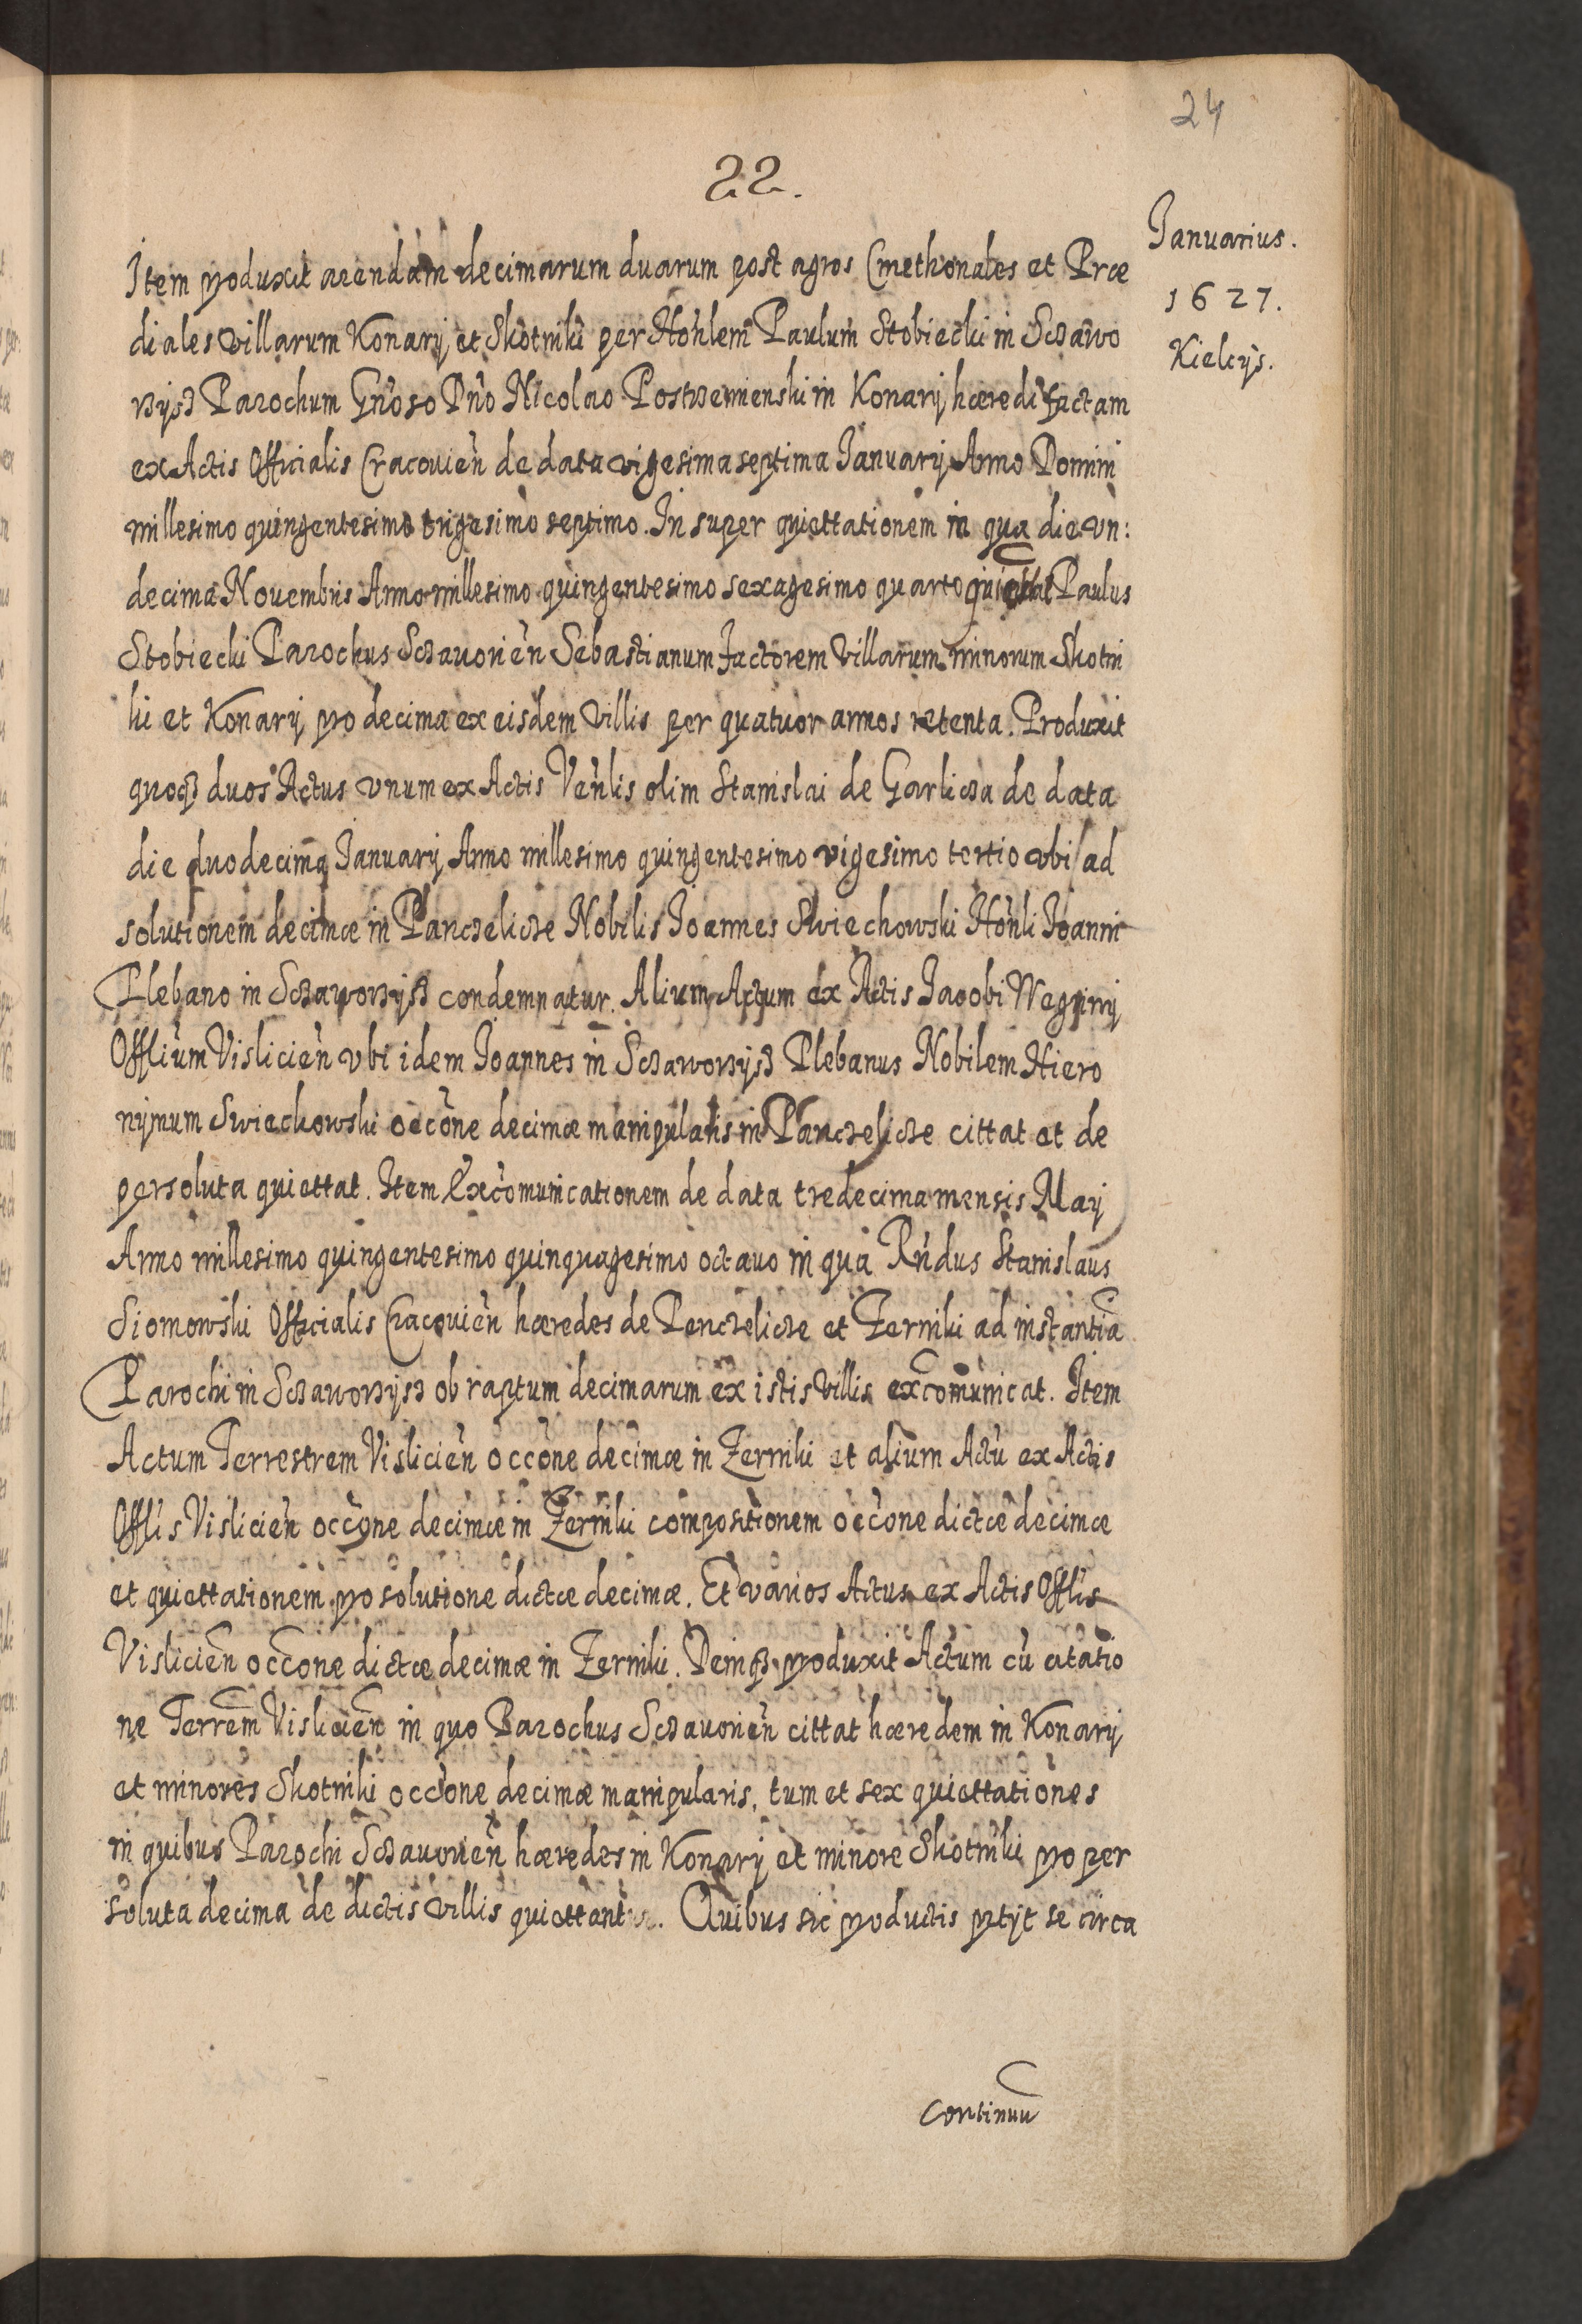 24
22.
Januarius.
1627.
Kielcys.
Item produxit arendam decimarum duarum post agros Cmethonales et Præ
diales villarum Konarÿ et Skotniki per Honlem Paulum Stobiecki in Sczawo
rzysz Parochum Gnoso Dno Nicolao Postrzemienski in Konarÿ hæredi factam
ex Actis Officialis Cracouien de data vigesima septima Januarÿ Anno Domini
millesimo quingentesimo trigesimo septimo. In super quiettationem in qua die vn:
decima Nouembris Anno millesimo quingentesimo sexagesimo quarto quiettat Paulus
Stobiecki Parochus Sczauorien Sebastianum factorem villarum minorum Skotni
ki et Konarÿ pro decima ex eisdem villis per quatuor annos retenta. Produxit
quoqз duos Actus vnum ex Actis Venlis olim Stanislai de Garlicza de data
die duodecima Januarÿ Anno millesimo quingentesimo vigesimo tertio vbi ad
solutionem decimæ in Panczelicze Nobilis Joannes Swiechowski Honli Joanni
Plebano in Sczaworzysz condemnatur. Alium Actum ex Actis Jacobi
Offlium Vislicien vbi idem Joannes in Sczaworzysz Plebanus Nobilem Hiero
nymum Swieckowski occone decimæ manipularis in Panczelicze cittat et de
persoluta quiettat. Item Excomunicationem de data tredecima mensis Maÿ
Anno millesimo quingentesimo quinquagesimo octauo in qua Rndus Stanislaus
Siomowski Officialis Cracouien hæredes de Penczelicze et Zerniki ad instantia
Parochi in Sczaworzysz ob raptum decimarum ex istis villis excomunicat. Item
Actum Terrestrem Vislicien occone decimæ in Zerniki et alium Actu ex Actis
Offlis Vislicien occone decimæ in Zerniki compositionem occone dictæ decimæ
et quiettationem pro solutione dictæ decimæ. Et varios Actus ex Actis Offlis
Vislicien occone dictæ decimæ in Zerniki. Deinqз produxit Actum cu citatio
ne Terrem Vislicien in quo Parochus Sczauorien cittat hæredem in Konarÿ
et minores Skotniki occone decimæ manipularis, tum et sex quiettationes
in quibus Parochi Sczauorien hæredes in Konarÿ et minore Skotniki pro per
soluta decima de dictis villis quiettantur. Quibus sic productis ptÿt se circa
continuu